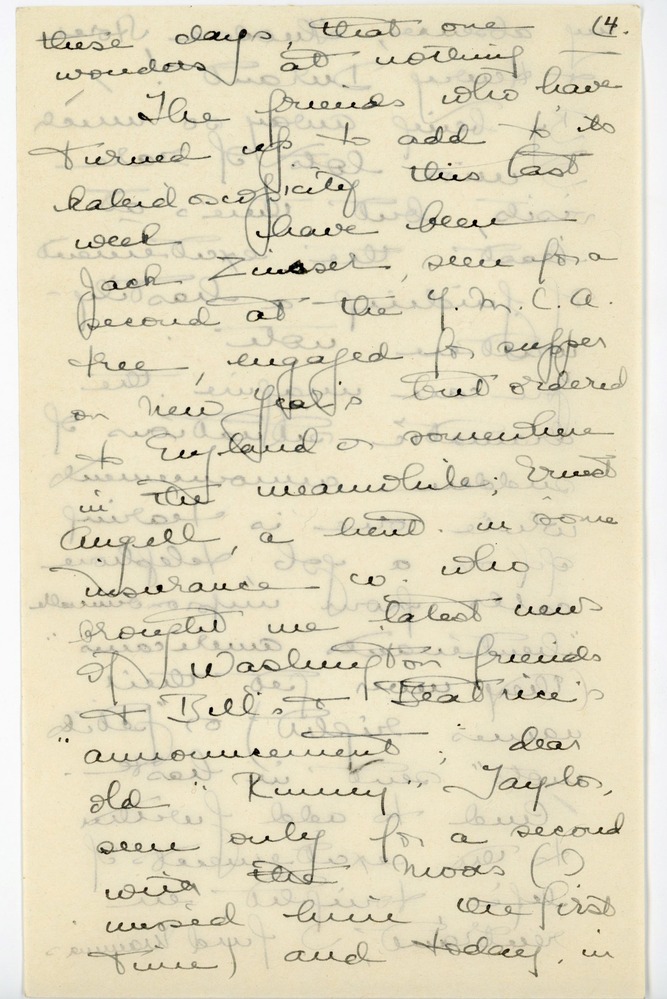 (4.
these days, that one
wonders at nothing
The friends who have
turned up to add to its
kaleidoscopicity this last
week have been
Jack Zinsser, seen for a
second at the Y.M.C.A.
tree, engaged for supper
on New Year's but ordered
to England or somewhere
in the meanwhile; Ernest
Angell, a lieut. in some
insurance co. who
brought me latest news
of Washington friends
& Bill's & Beatrice's
"announcement"; dear
old "Rummy" Taylor,
seen only for a second
with the Moors (I
missed him the first
time) and today, in